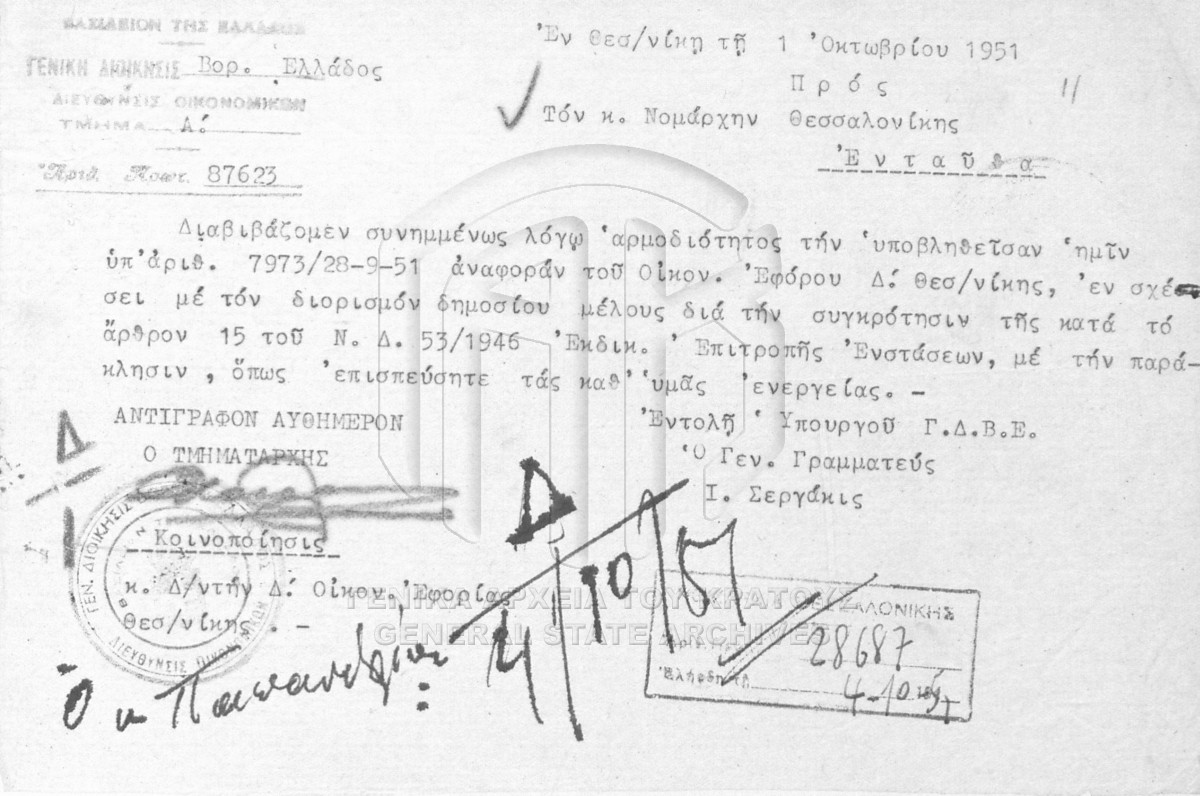 ΒΑΣΙΛΕΙΟΝ ΤΗΣ ΕΛΛΑΔΟΣ
ΓΕΝΙΚΗ ΔΙΟΙΚΗΣΙΣ Βορ. Ἑλλάδος
ΔΙΕΥΘΥΝΣΙΣ ΟΙΚΟΝΟΜΙΚΩΝ
ΤΜΗΜΑ Α΄.
Ἀριθ. Πρωτ. 87623
Ἐν Θεσ/νίκῃ τῇ 1 Ὀκτωβρίου 1951
Πρός
11
Τόν κ. Νομάρχην Θεσσαλονίκης
Ἐνταῦθα
Διαβιβάζομεν συνημμένως λόγῳ ἁρμοδιότητος τήν ὑποβληθεῖσαν ἡμῖν
ὑπ'ἀριθ. 7973/28-9-51 ἀναφοράν τοῦ Οἰκον. Ἐφόρου Δ΄. Θεσ/νίκης, ἐν σχέ-
σει μέ τόν διορισμόν δημοσίου μέλους διά τήν συγκρότησιν τῆς κατά τό
ἄρθρον 15 τοῦ Ν. Δ. 53/1946 Ἐκδικ. Ἐπιτροπῆς Ἐνστάσεων, μέ τήν παρά-
κλησιν , ὅπως ἐπισπεύσητε τάς καθ' ὑμᾶς ἐνεργείας. -
ΑΝΤΙΓΡΑΦΟΝ ΑΥΘΗΜΕΡΟΝ
Ο ΤΜΗΜΑΤΑΡΧΗΣ
Ἐντολῇ Ὑπουργοῦ Γ.Δ.Β.Ε.
Ὁ Γεν. Γραμματεύς
Ι. Σεργάκις
Δ
Κοινοποίησις
κ. Δ/ντήν Δ΄. Οἰκον. Ἐφορίας
Θεσ/νίκης . -
ΓΕΝ. ΔΙΟΙΚΗΣΙΣ
ΔΙΕΥΘΥΝΣΙΣ ΟΙΚΟΝΟΜΙΚΩΝ
Δ
4/10/51
Ὁ κ
ΓΕΝΙΚΑ ΑΡΧΕΙΑ ΤΟΥ ΚΡΑΤΟΥΣ
GENERAL STATE ARCHIVES
28687
Ἐλήφθη τῇ 4-10-51